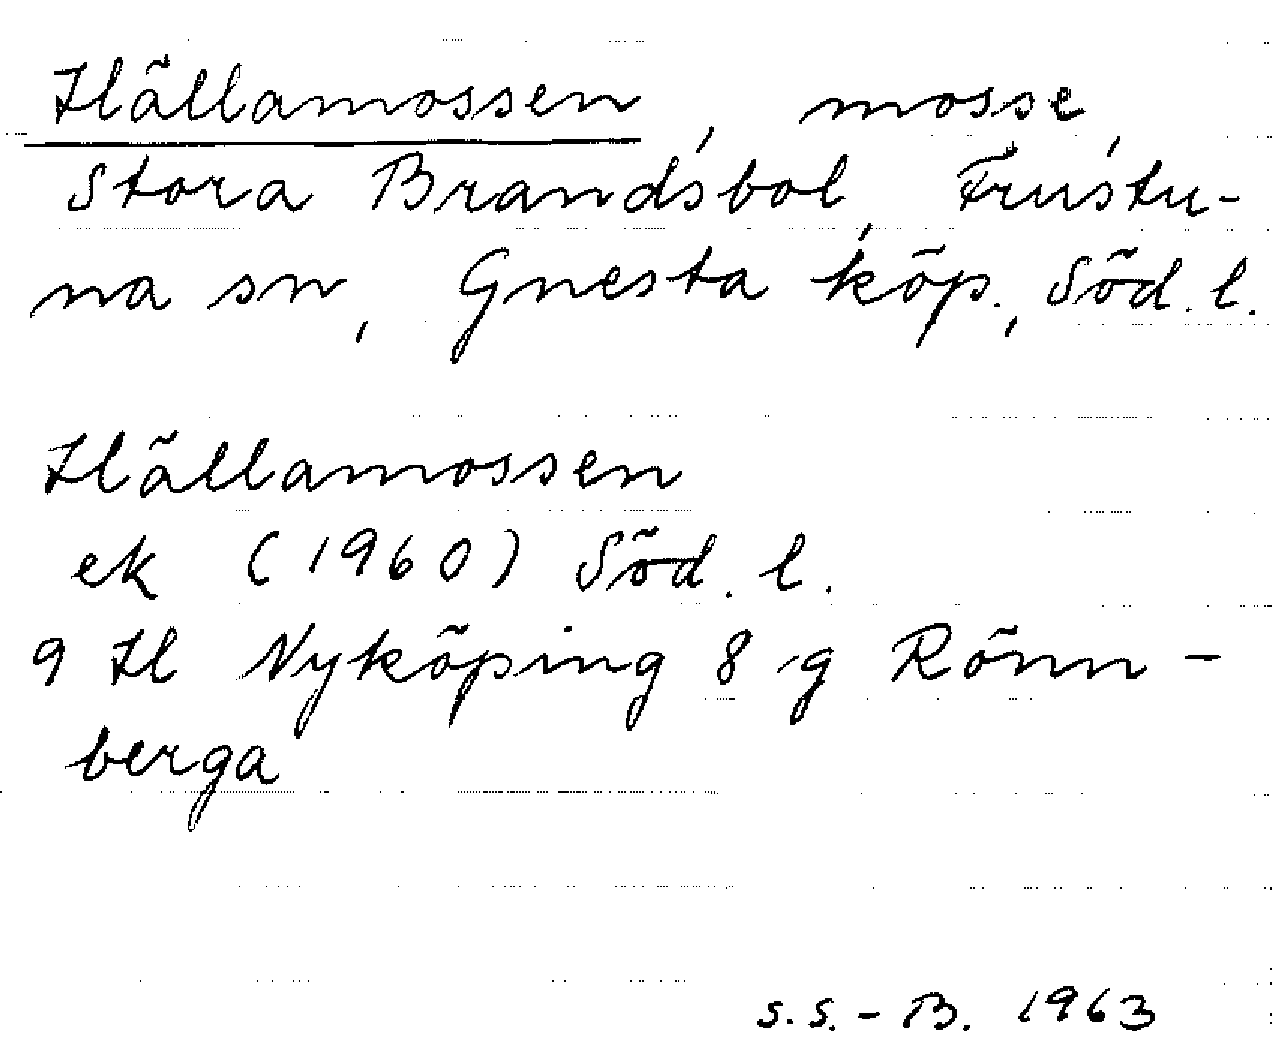 Hällamossen, mosse,
Stora Brandsbol, Frustu-
na sn, Gnesta köp., Söd. l.
Hällamossen
ek (1960) Söd. l.
9 H Nyköping 8 g Rönn-
berga
S.S.-B. 1963